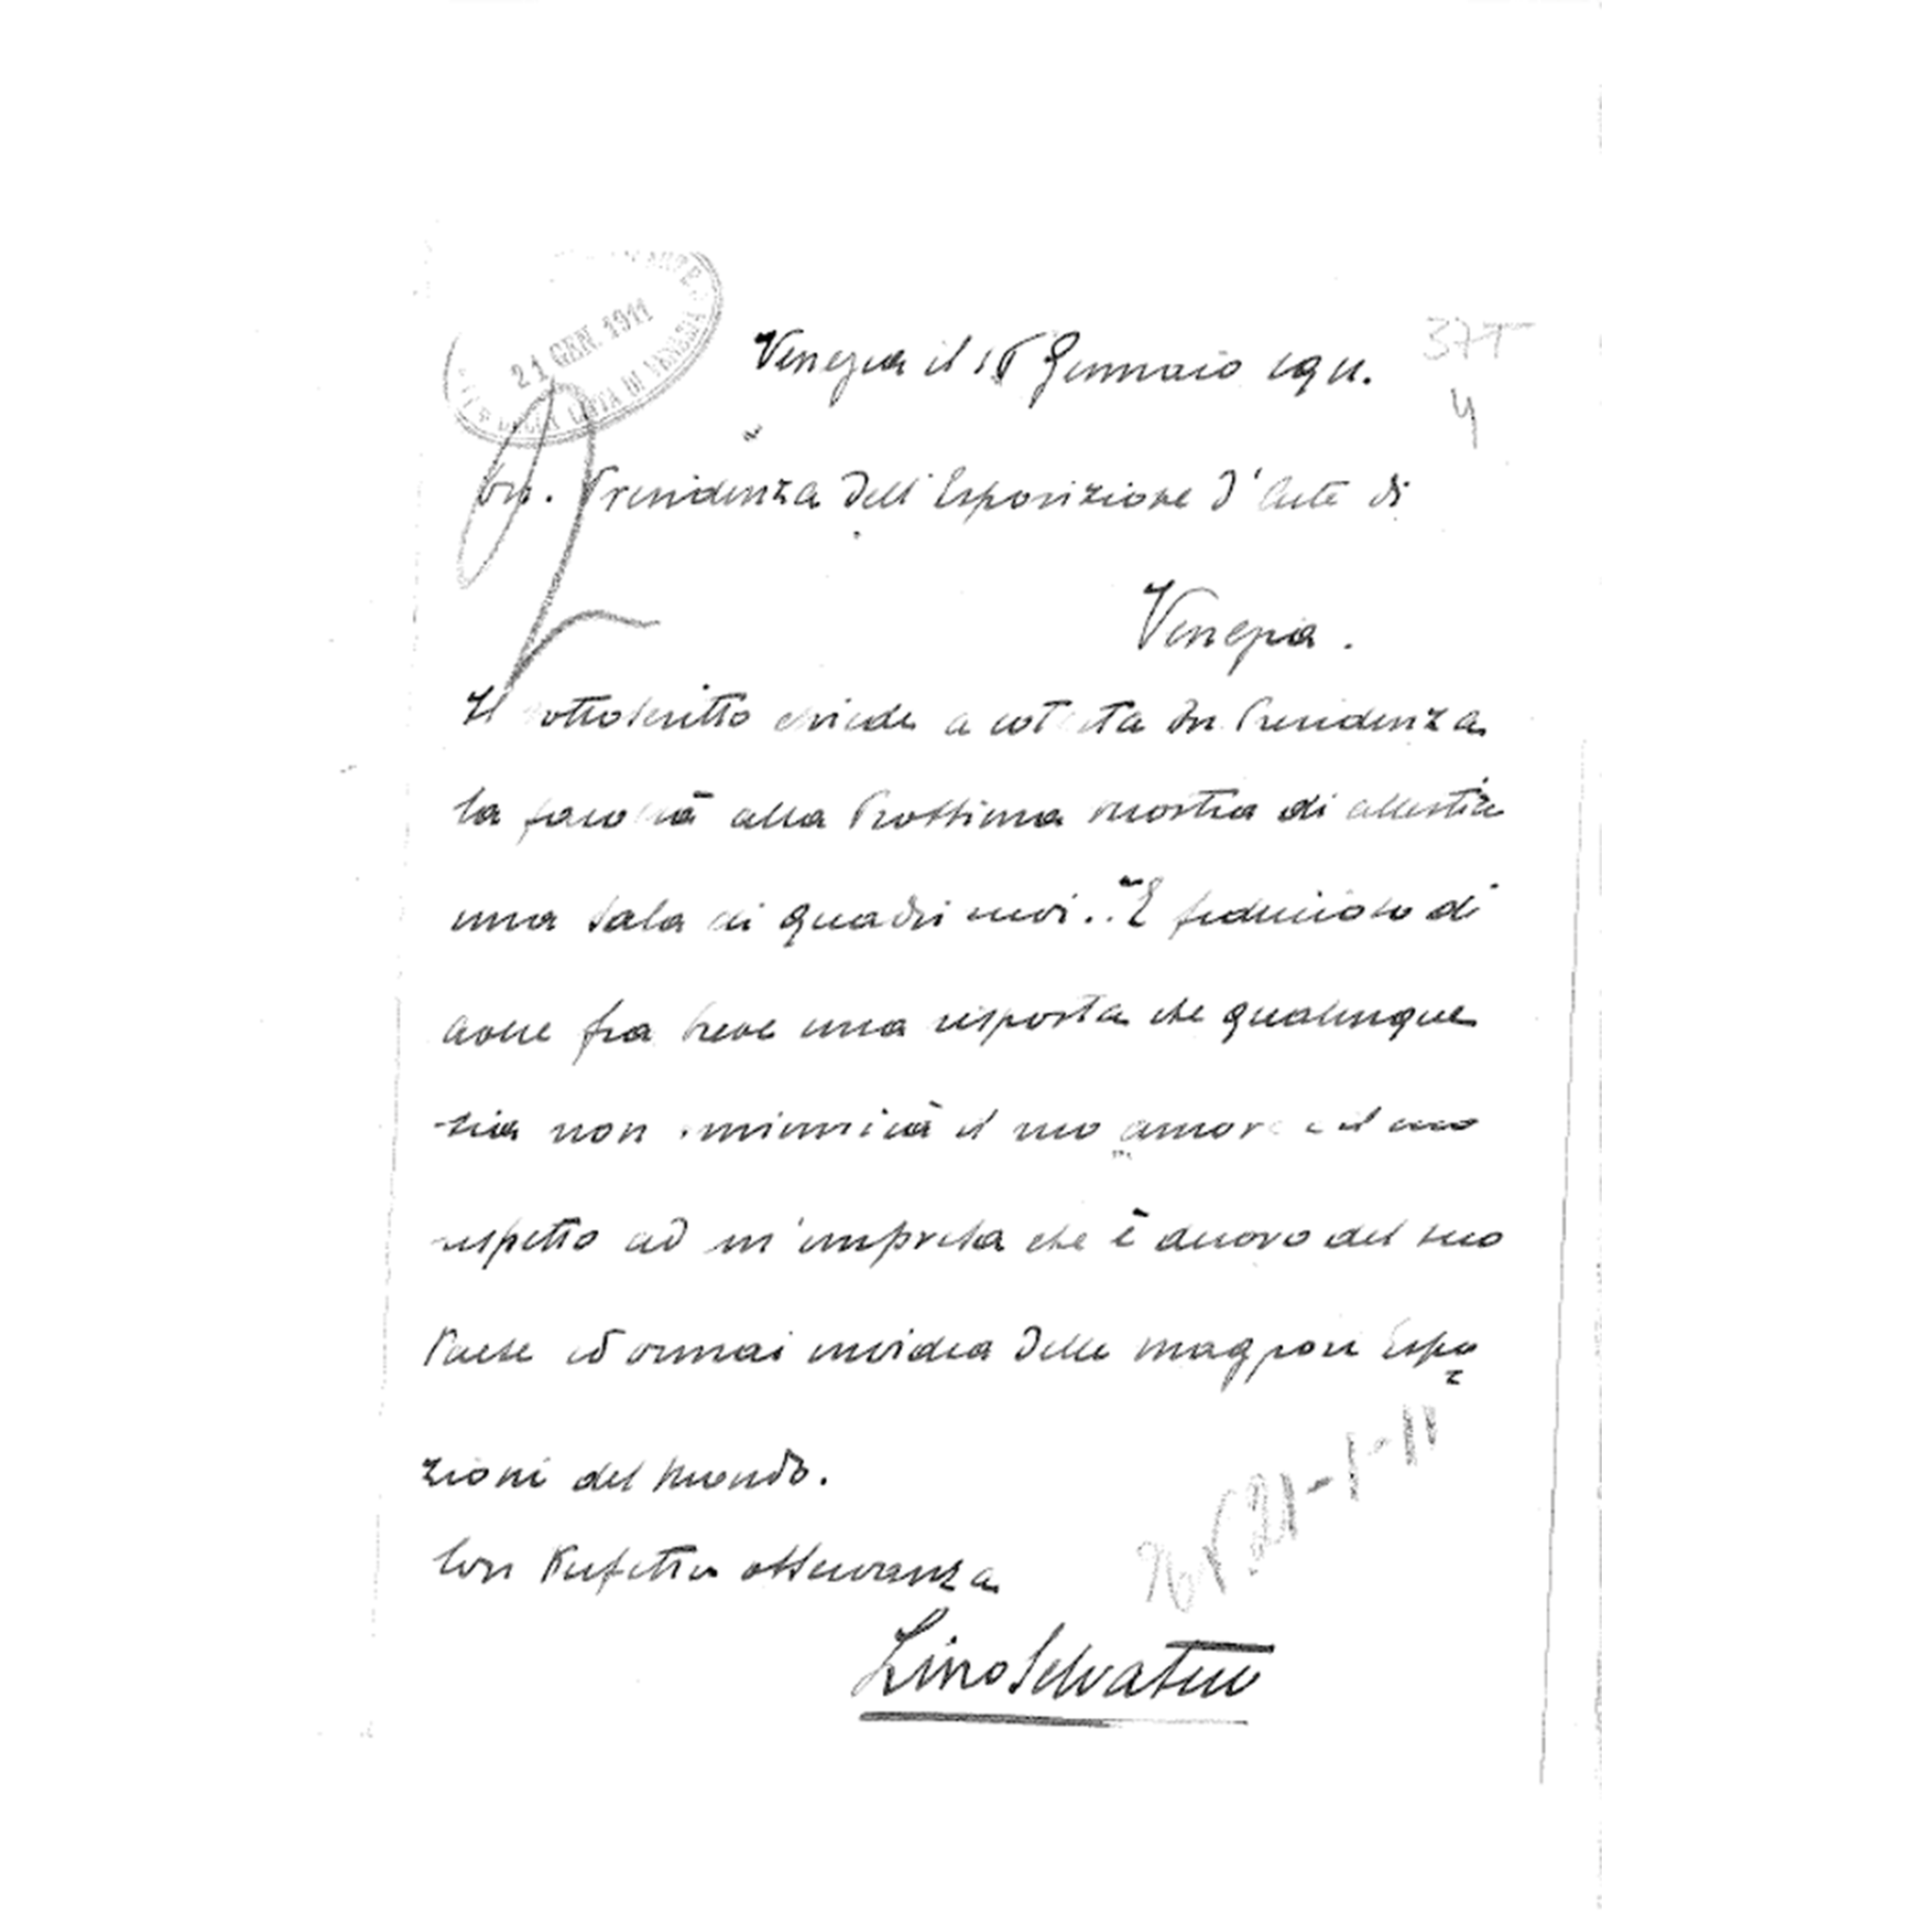 21 GEN. 1911
DI VENEZIA
Venezia il Gennaio 1911.
377
4
On. Presidenza dell'Esposizione d'Arte di
Venezia.
Il sottoscritto chiede a cotesta On. Presidenza
la facoltà alla Prossima mostra di allestire
una sala di quadri suoi.. E fiducioso di
avere fra breve una risposta che qualunque
sia non sminuirà il suo amore e il suo
rispetto ad un'impresa che è decoro del suo
Paese ed ormai invidia delle maggiori Espo
=
zioni del Mondo.
Con Perfetta osservanza
21-1-11
Lino Selvatico